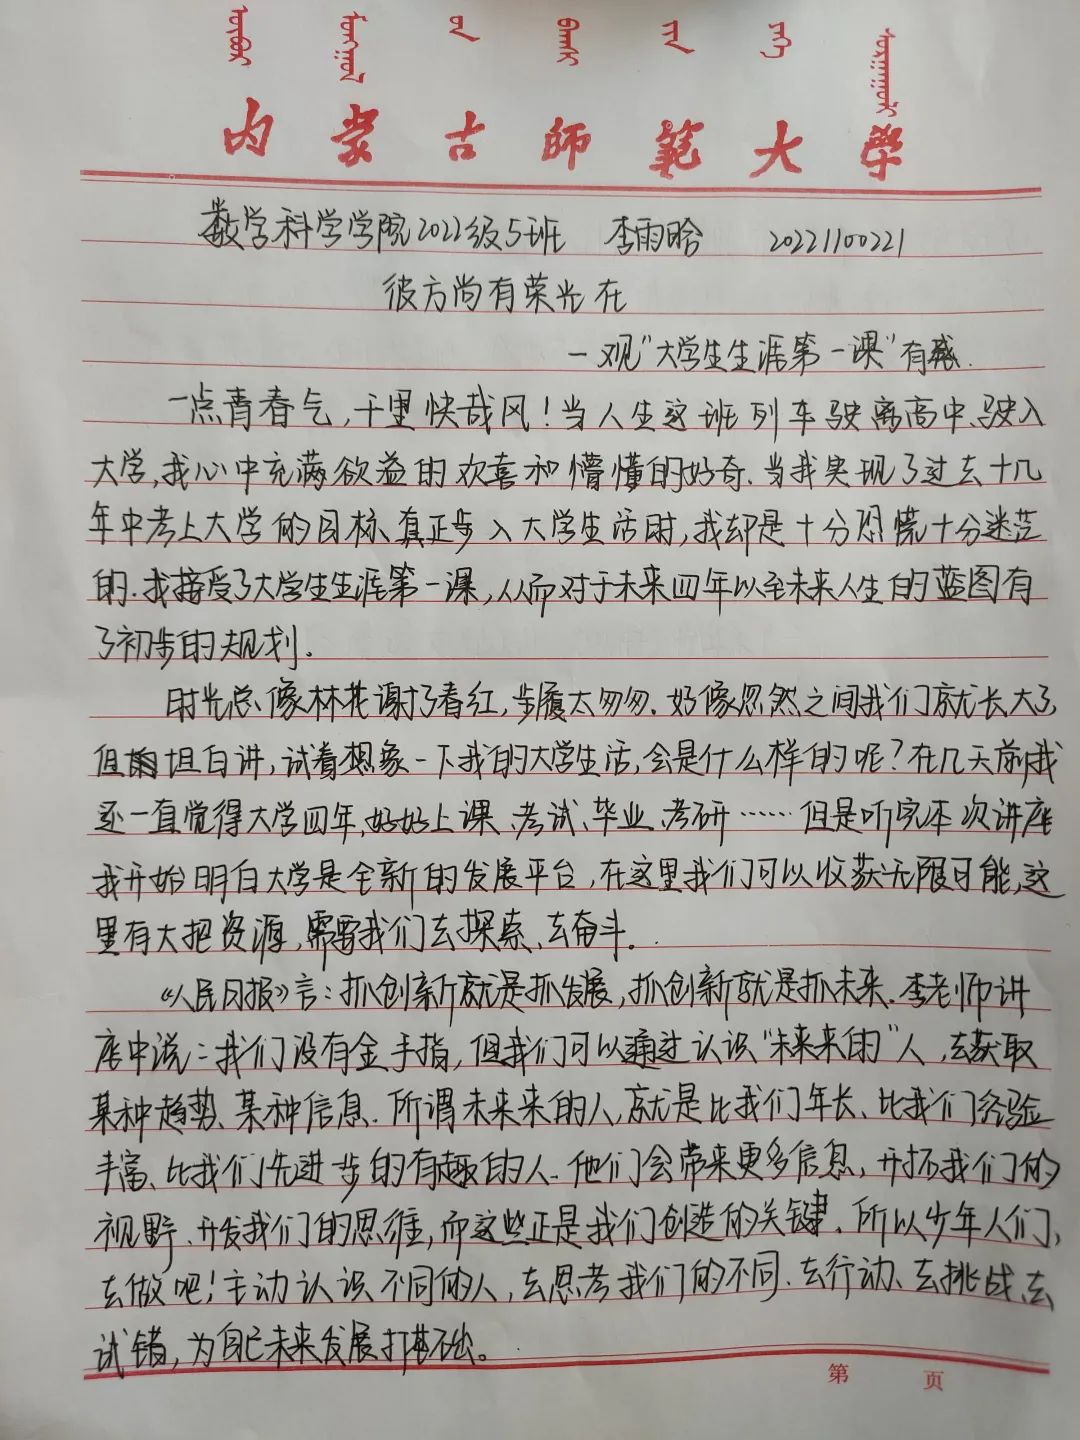 内蒙古师范大学
数学科学学院2022级5班 李雨晗 20221100221
彼方尚有荣光在
一观"大学生生涯第一课"有感.
一点青春气,千里快哉风!当人生这班列车驶离高中、驶入
大学,我心中充满欲益的欢喜和懵懂的好奇.当我实现了过去十几
年中考上大学的目标、真正步入大学生活时,我却是十分恐慌十分迷茫
的.我接受了大学生生涯第一课,从而对于未来四年以至未来人生的蓝图有
了初步的规划.
时光总像林花谢了春红,步履太匆匆.好像忽然之间我们就长大了,
但坦白讲,试着想象一下我的大学生活,会是什么样的呢?在几天前,我
还一直觉得大学四年,好好上课、考试、毕业、考研……但是听完本次讲座
我开始明白大学是全新的发展平台,在这里我们可以收获无限可能,这
里有大把资源,需要我们去探索、去奋斗.
《人民日报》言:抓创新就是抓发展,抓创新就是抓未来.李老师讲
座中说:我们没有金手指,但我们可以通过认识"未来来的"人,去获取
某种趋势、某种信息.所谓未来来的人,就是比我们年长、比我们经验
丰富、比我们先进步的有趣的人.他们会带来更多信息,开拓我们的
视野、开发我们的思维,而这些正是我们创造的关键.所以少年人们,
去做吧!主动认识不同的人,去思考我们的不同、去行动、去挑战、去
试错,为自己未来发展打基础。
第 页